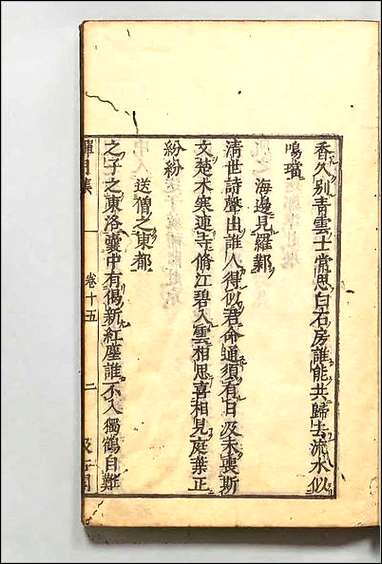 香久別青雲士常思白石房誰能共歸去流水似
鳴璫
海邊見羅鄴
清世詩聲出誰人得似君命通須有日天未喪斯
文楚木寒連寺脩江碧入雲相思喜相見庭葉正
紛紛
送僧之東都
之子之東洛囊中有偈新紅塵誰不入獨鶴自難
禪月集
卷十五
二
汲古閣